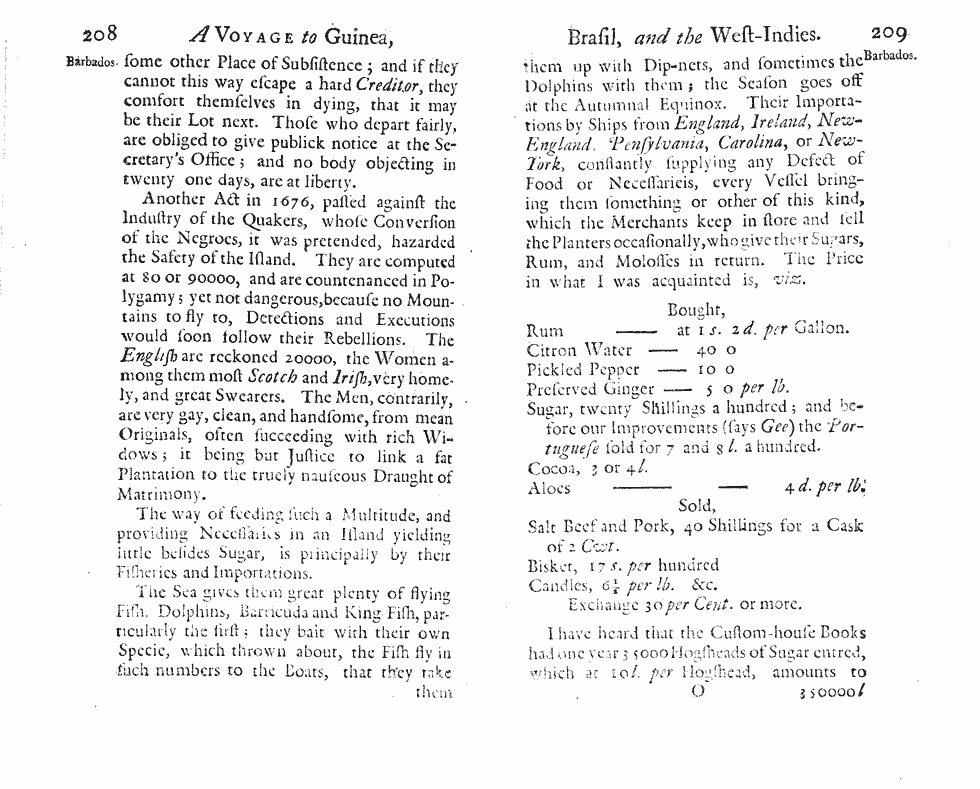 208 A VOYAGE to Guinea,
Barbados. ſome other Place of Subſiſtence ; and if they
cannot this way eſcape a hard Creditor, they
comfort themſelves in dying, that it may
be their Lot next. Thoſe who depart fairly,
are obliged to give publick notice at the Se-
cretary's Office ; and no body objecting in
twenty one days, are at liberty.
Another Act in 1676, paſſed againſt the
Induſtry of the Quakers, whoſe Converſion
of the Negroes, it was pretended, hazarded
the Safety of the Iſland. They are computed
at 80 or 90000, and are countenanced in Po-
lygamy ; yet not dangerous, becauſe no Moun-
tains to fly to, Detections and Executions
would ſoon follow their Rebellions. The
Engliſh are reckoned 20000, the Women a-
mong them moſt Scotch and Iriſh, very home-
ly, and great Swearers. The Men, contrarily,
are very gay, clean, and handſome, from mean
Originals, often ſucceeding with rich Wi-
dows ; it being but Juſtice to link a fat
Plantation to the truely nauſeous Draught of
Matrimony.
The way of feeding ſuch a Multitude, and
providing Neceſſaries in an Iſland yielding
little beſides Sugar, is principally by their
Fiſheries and Importations.
The Sea gives them great plenty of flying
Fiſh, Dolphins, Barricuda and King-Fiſh, par-
ticularly the firſt ; they bait with their own
Specie, which thrown about, the Fiſh fly in
ſuch numbers to the Boats, that they take
them
Braſil, and the Weſt-Indies. 209
them up with Dip-nets, and ſometimes the Barbados.
Dolphins with them ; the Seaſon goes off
at the Autumnal Equinox. Their Importa-
tions by Ships from England, Ireland, New-
England, Penſylvania, Carolina, or New-
York, conſtantly ſupplying any Defect of
Food or Neceſſarieis, every Veſſel bring-
ing them ſomething or other of this kind,
which the Merchants keep in ſtore and ſell
the Planters occaſionally, who give their Sugars,
Rum, and Moloſſes in return. The Price
in what I was acquainted is, viz.
Bought,
Rum —— at 1 s. 2 d. per Gallon.
Citron Water —— 40 0
Pickled Pepper —— 10 0
Preſerved Ginger —— 5 0 per lb.
Sugar, twenty Shillings a hundred ; and be-
fore our Improvements (ſays Gee) the Por-
tugueſe ſold for 7 and 8 l. a hundred.
Cocoa, 3 or 4 l.
Aloes —— —— 4 d. per lb.
Sold,
Salt Beef and Pork, 40 Shillings for a Cask
of 2 Cwt.
Bisket, 17 s. per hundred
Candles, 6½ per lb. &c.
Exchange 30 per Cent. or more.
I have heard that the Cuſtom-houſe Books
had one year 35000 Hogſheads of Sugar entred,
which at 10 l. per Hogſhead, amounts to
O 350000 l